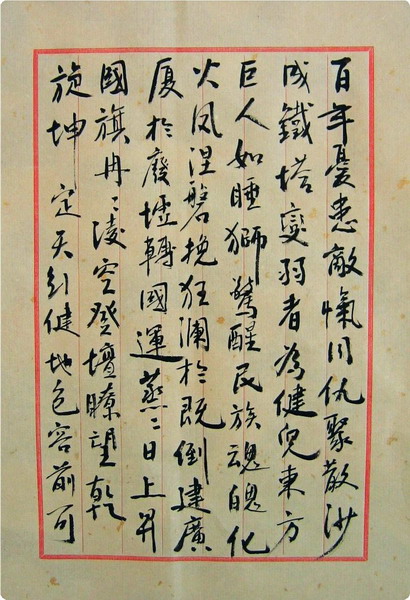 百年憂患敵愾同仇聚散沙
成鐵塔變弱者為健兒東方
巨人如睡獅驚醒民族魂魄化
火凤涅磐挽狂瀾於既倒建廣
厦於廢墟轉國運蒸〻日上昇
國旗冉〻凌空登壇瞭望乾
旋坤 定天行健地包容前可